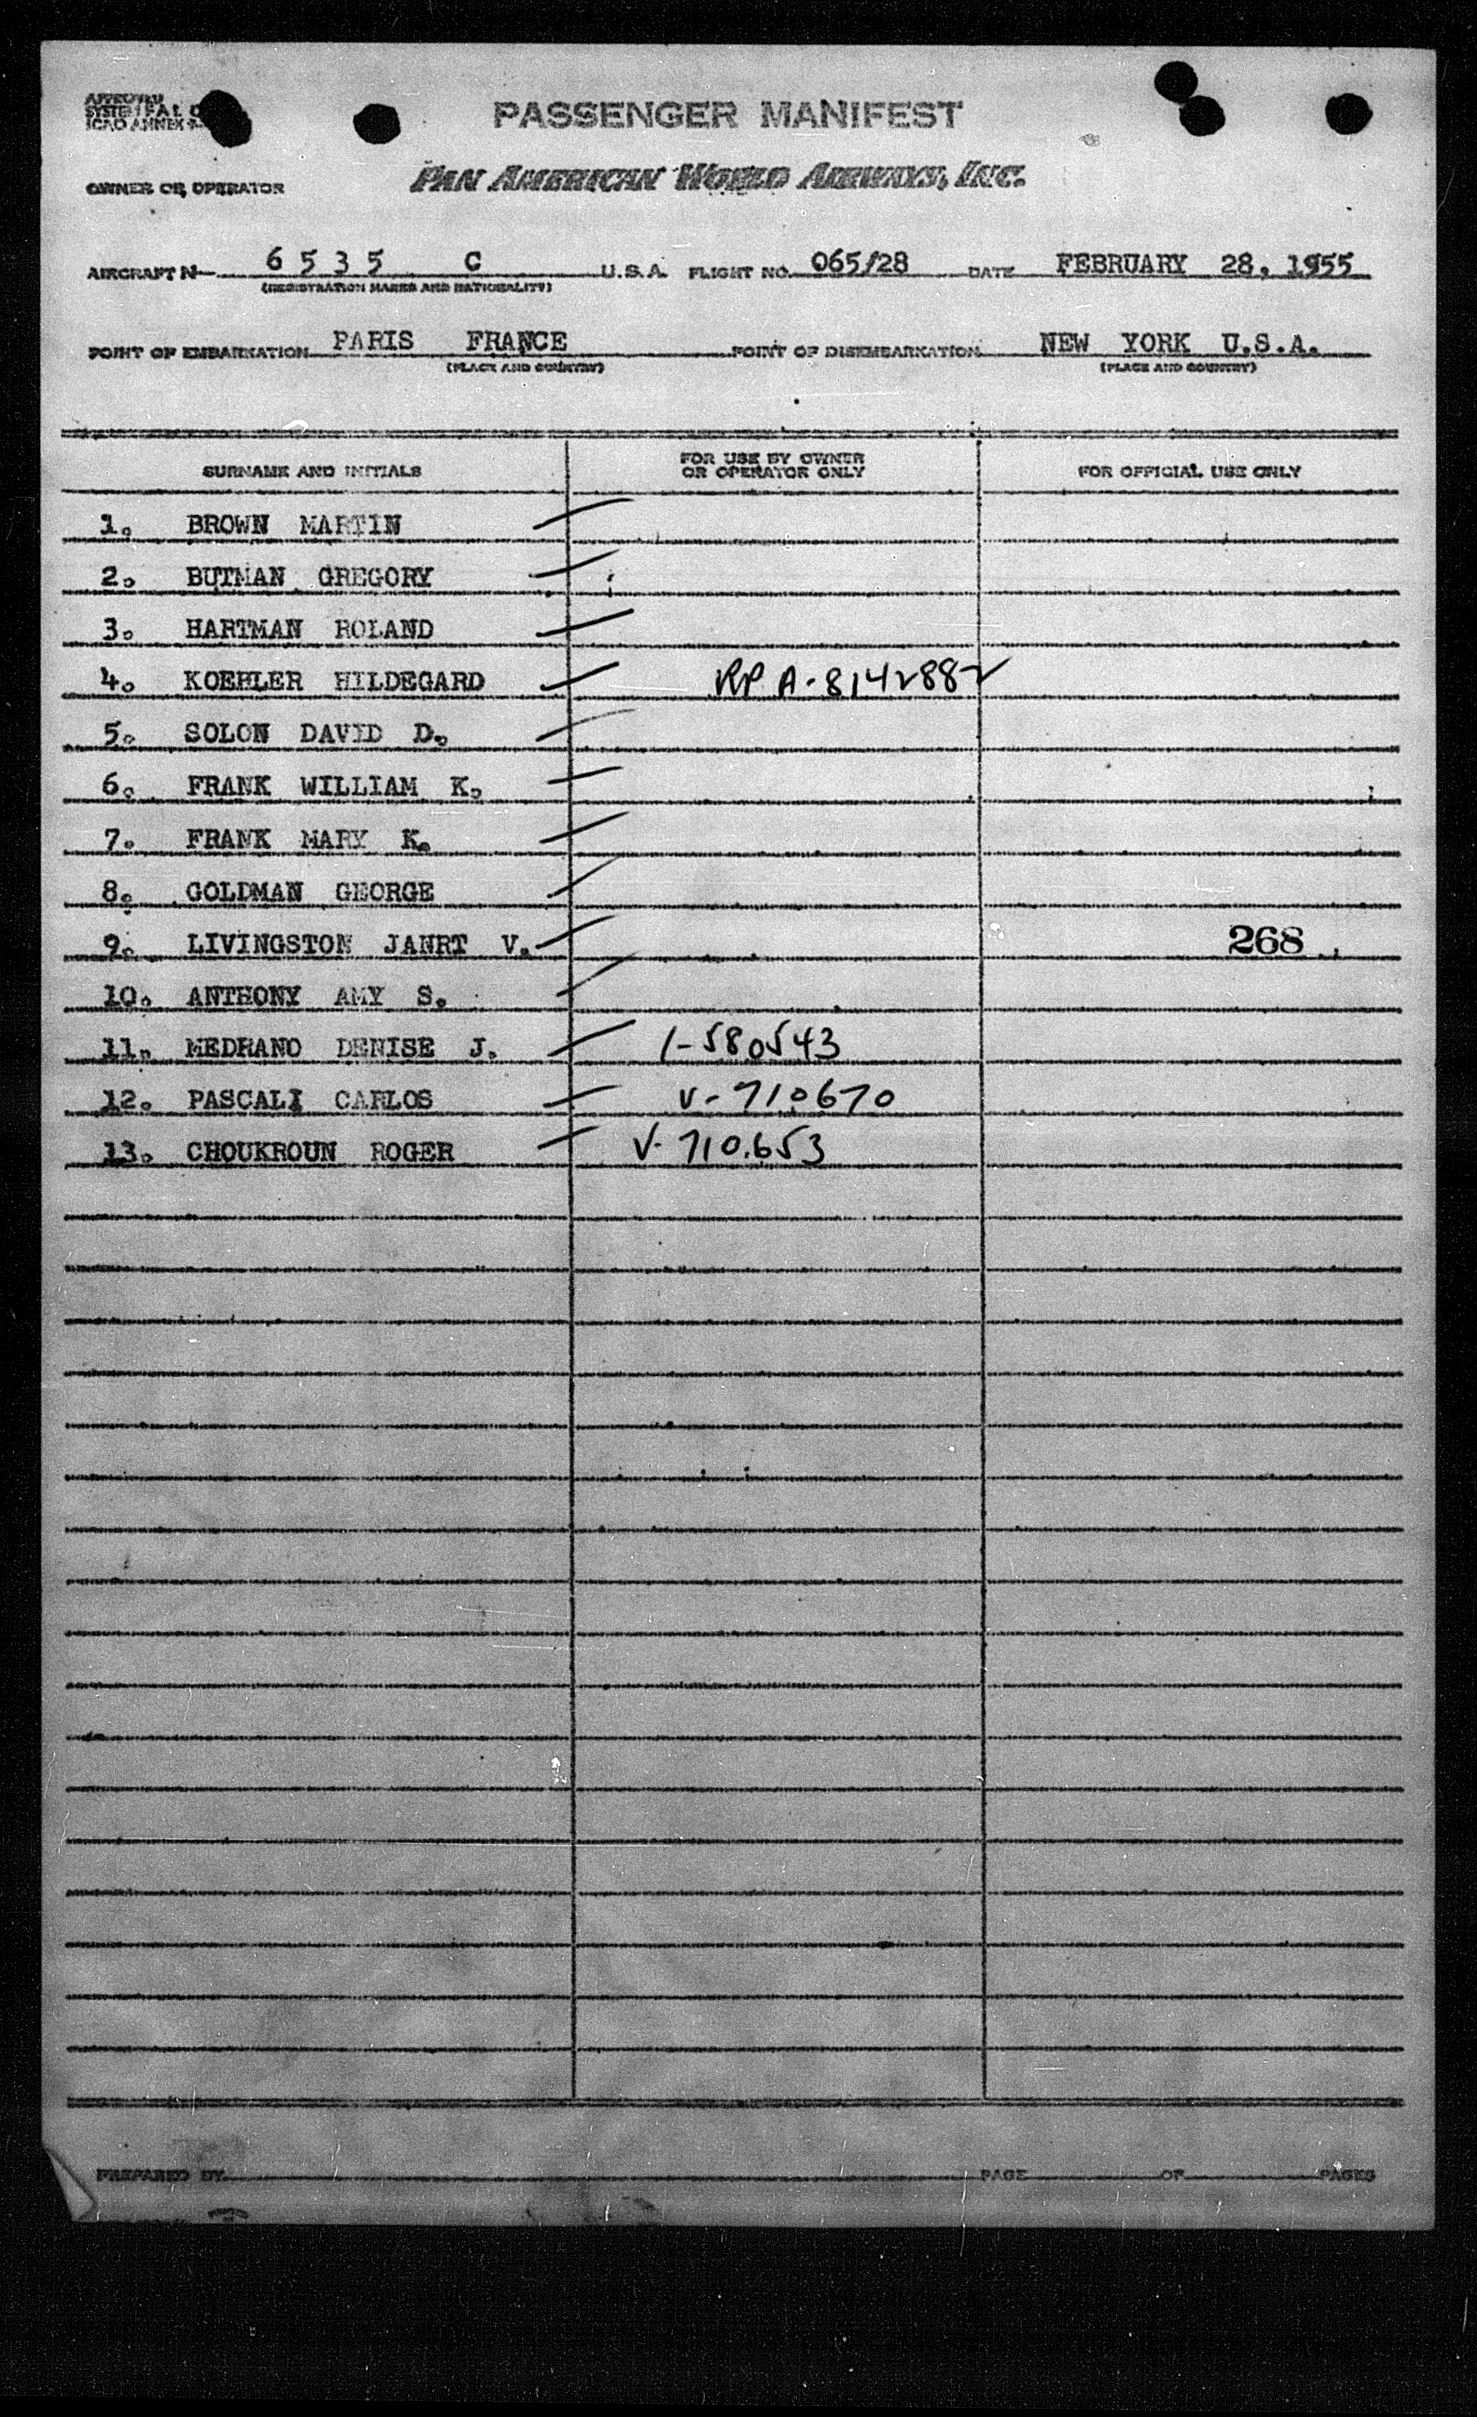 APPROVED
SYSTEM F.A.L.
ICAO ANNEX 9
PASSENGER MANIFEST
OWNER OR OPERATOR PAN AMERICAN WORLD AIRWAYS, INC.
AIRCRAFT N- 6 5 3 5 C U.S.A. FLIGHT NO. 065/28 DATE FEBRUARY 28, 1955
(REGISTRATION MARKS AND NATIONALITY)
POINT OF EMBARKATION PARIS FRANCE POINT OF DISEMBARKATION NEW YORK U.S.A.
(PLACE AND COUNTRY) (PLACE AND COUNTRY)
SURNAME AND INITIALS FOR USE BY OWNER OR OPERATOR ONLY FOR OFFICIAL USE ONLY
1. BROWN MARTIN
2. BUTMAN GREGORY
3. HARTMAN ROLAND
4. KOEHLER HILDEGARD RP A-8142882
5. SOLON DAVID D.
6. FRANK WILLIAM K.
7. FRANK MARY K.
8. GOLDMAN GEORGE
9. LIVINGSTON JANRT V. 268
10. ANTHONY AMY S.
11. MEDRANO DENISE J. 1-580543
12. PASCALI CARLOS V-710670
13. CHOUKROUN ROGER V-710653
PREPARED BY PAGE OF PAGES